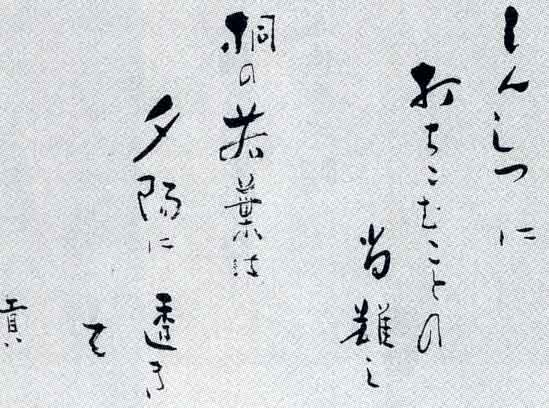 しんしつに
おちこむことの
尚難し
桐の若葉は
夕陽に透き
て
真